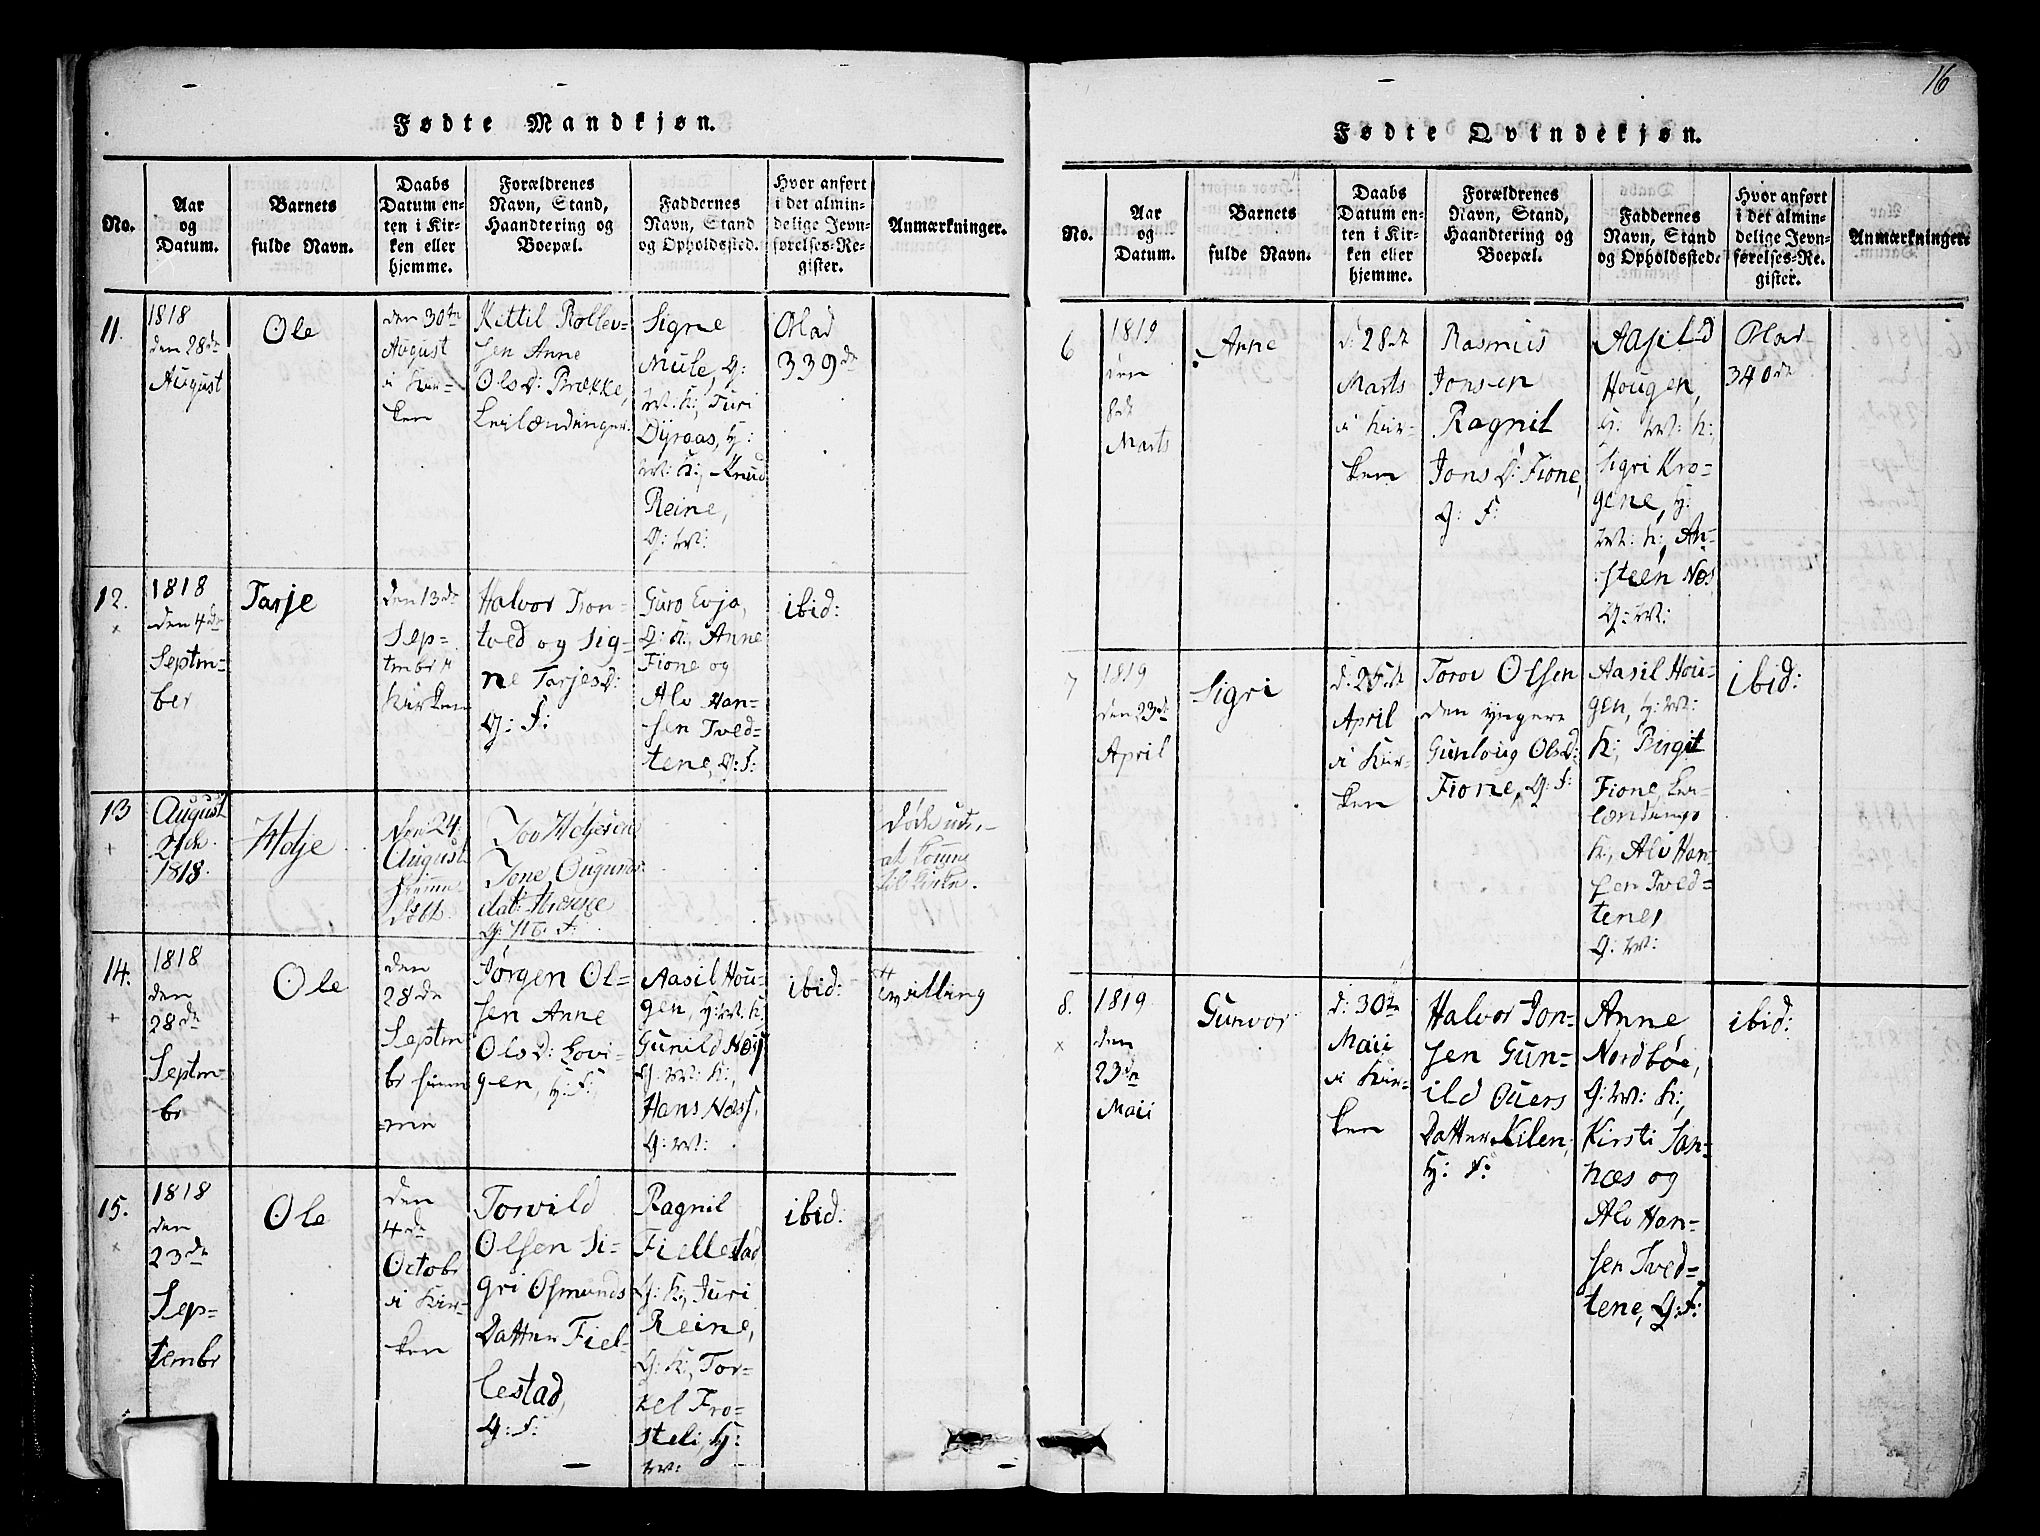 16
Fødte Mandkjøn.
No.
Aar
og
Datum.
Barnets
fulde Navn.
Daabs
Datum en-
ten i Kir-
ken eller
hjemme.
Forældrenes
Navn, Stand,
Haandtering og
Boepæl.
Faddernes
Navn, Stand
og Opholdssted.
Hvor anført
i det almin-
delige Jevn-
førelses-Re-
gister.
Anmærkninger.
11.
1818
den 28de
August
Ole
den 30te
August
i Kir-
ken
Kittil Rollev-
sen Anne
OlsD: Brække,
Leilændinger.
Signe
Mule, G:
W: K:, Turi
Dyraas, H:
W: K:, Knud
Reine,
G: W:
Olad
339de
12.
1818
den 4de
Septm-
ber
Tarje
den 13de
Sep-
tmbr i
Kirken
Halvor Tron-
tved og Sig-
ne TarjesD:
G: F:
Guro Evja,
G: K:, Anne
Fione og
Alv Han-
sen Tved-
tene, G: F:
ibid:
13
August
21de
1818.
Holje
den 24
August
hjemme
døbt.
Jov Holjesen
Tone Ougunds
dat:
døde uden
at komme
til Kirken.
14.
1818
den
28de
Septm-
br
Ole
den
28de
Septm
br hiem
me
Jørgen Ol-
sen Anne
OlsD: Lovi-
gen, H: F:
Aasil Hou-
gen, H: W: K:
Gunild Næs
G: W: K:,
Hans Næss,
G: W:
ibid:
tvilling
15.
1818
den
23de
Sep-
tembr
Ole
den
4de
Octobr
i Kir-
ken
Torvild
Olsen Si-
gri Osmunds
Datter Fiel-
lestad,
G: F:
Ragnil
Fiellestad
G: K:, Turi
Reine,
G: K:, Tor-
kel Fro-
steli, H:
W:
ibid:
Fødte Qvindekjøn.
No.
Aar
og
Datum.
Barnets
fulde Navn.
Daabs
Datum en-
ten i Kir-
ken eller
hjemme.
Forældrenes
Navn, Stand,
Haandtering og
Boepæl.
Faddernes
Navn, Stand
og Opholdssted.
Hvor anført
i det almin-
delige Jevn-
førelses-Re-
gister.
Anmærkninger.
6
1819
den
8de
Marts
Anne
d: 28de
Marts
i Kir-
ken
Rasmus
Jonsen
Ragnil
JonsD: Fione,
G: F:
Aasild
Hougen,
H: W: K:,
Sigri Kro-
gene, H:
W: K:, An-
steen Næs
G: W:
Olad
340de
7
1819
den 23de
April
Sigri
d: 25de
April
i Kir-
ken
Torov Olsen
den yngere
Gunloug OlsD:
Fione, G: F:
Aasil Hou-
gen, H: W:
K:, Birgit
Fione, Lei-
lændings
K:, Alv Han-
sen Tved-
tene,
G: W:
ibid:
8.
1819
den
23de
Maii
Gunvor
d: 30te
Maii
i Kir-
ken
Halvor Jon-
sen Gun-
ild Ouers
Datter Kilen,
H: F:
Anne
Nordbøe,
G: W: K:,
Kirsti San-
næs og
Alv Han-
sen Tved-
tene, G: F:
ibid: